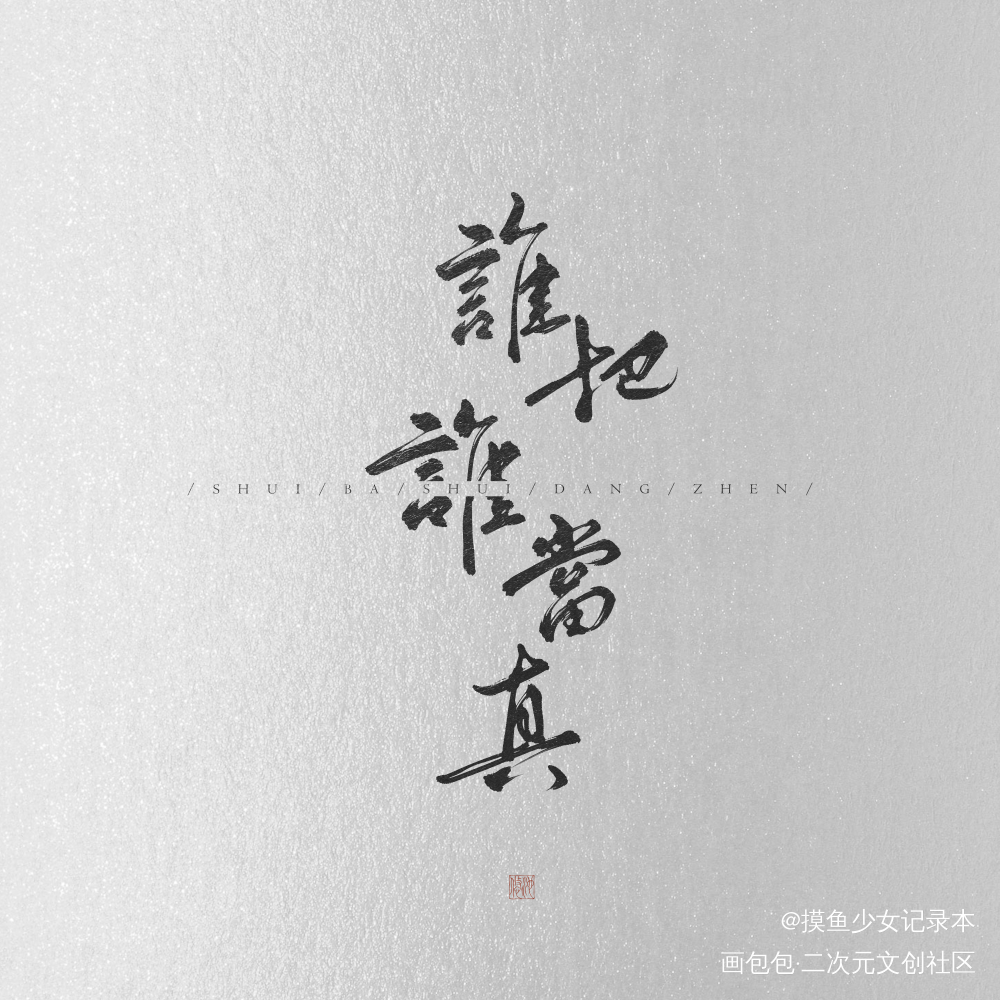 誰把誰當真
/SHUI/BA/SHUI/DANG/ZHEN/
@摸鱼少女记录本
画包包·二次元文创社区